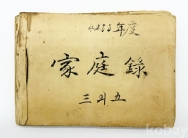 4288年度
家庭錄
三의五